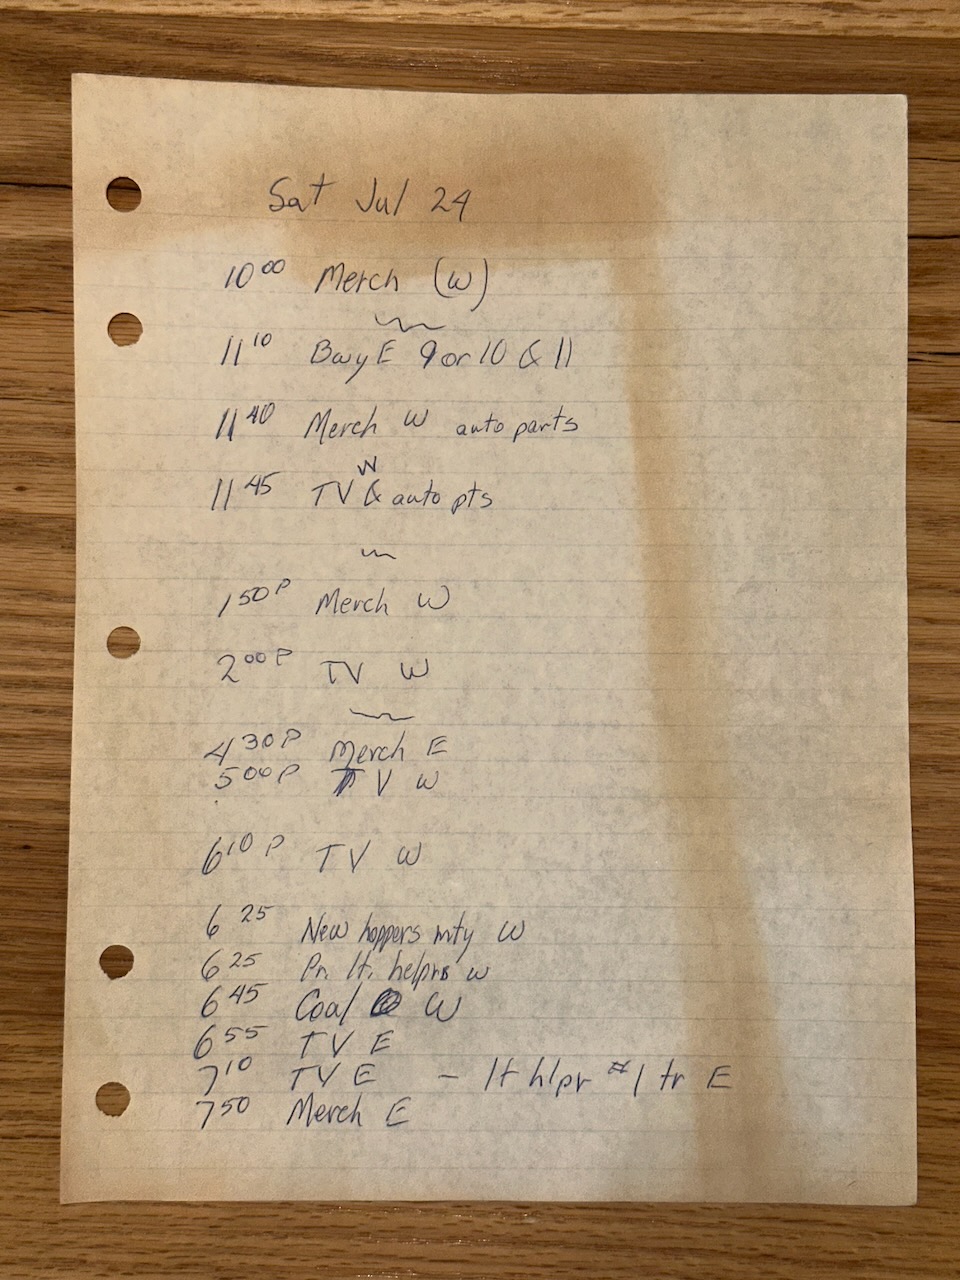 Sat Jul 24
10 00 Merch (W)
11 10 Bwy E 9 or 10 & 11
11 40 Merch W auto parts
11 45 TV W & auto pts
1 50 P Merch W
2 00 P TV W
4 30 P Merch E
5 00 P TV W
6 10 P TV W
6 25 New hoppers mty W
6 25 Pr. lt. helprs W
6 45 Coal W
6 55 TV E
7 10 TV E - lt hlpr #1 tr E
7 50 Merch E